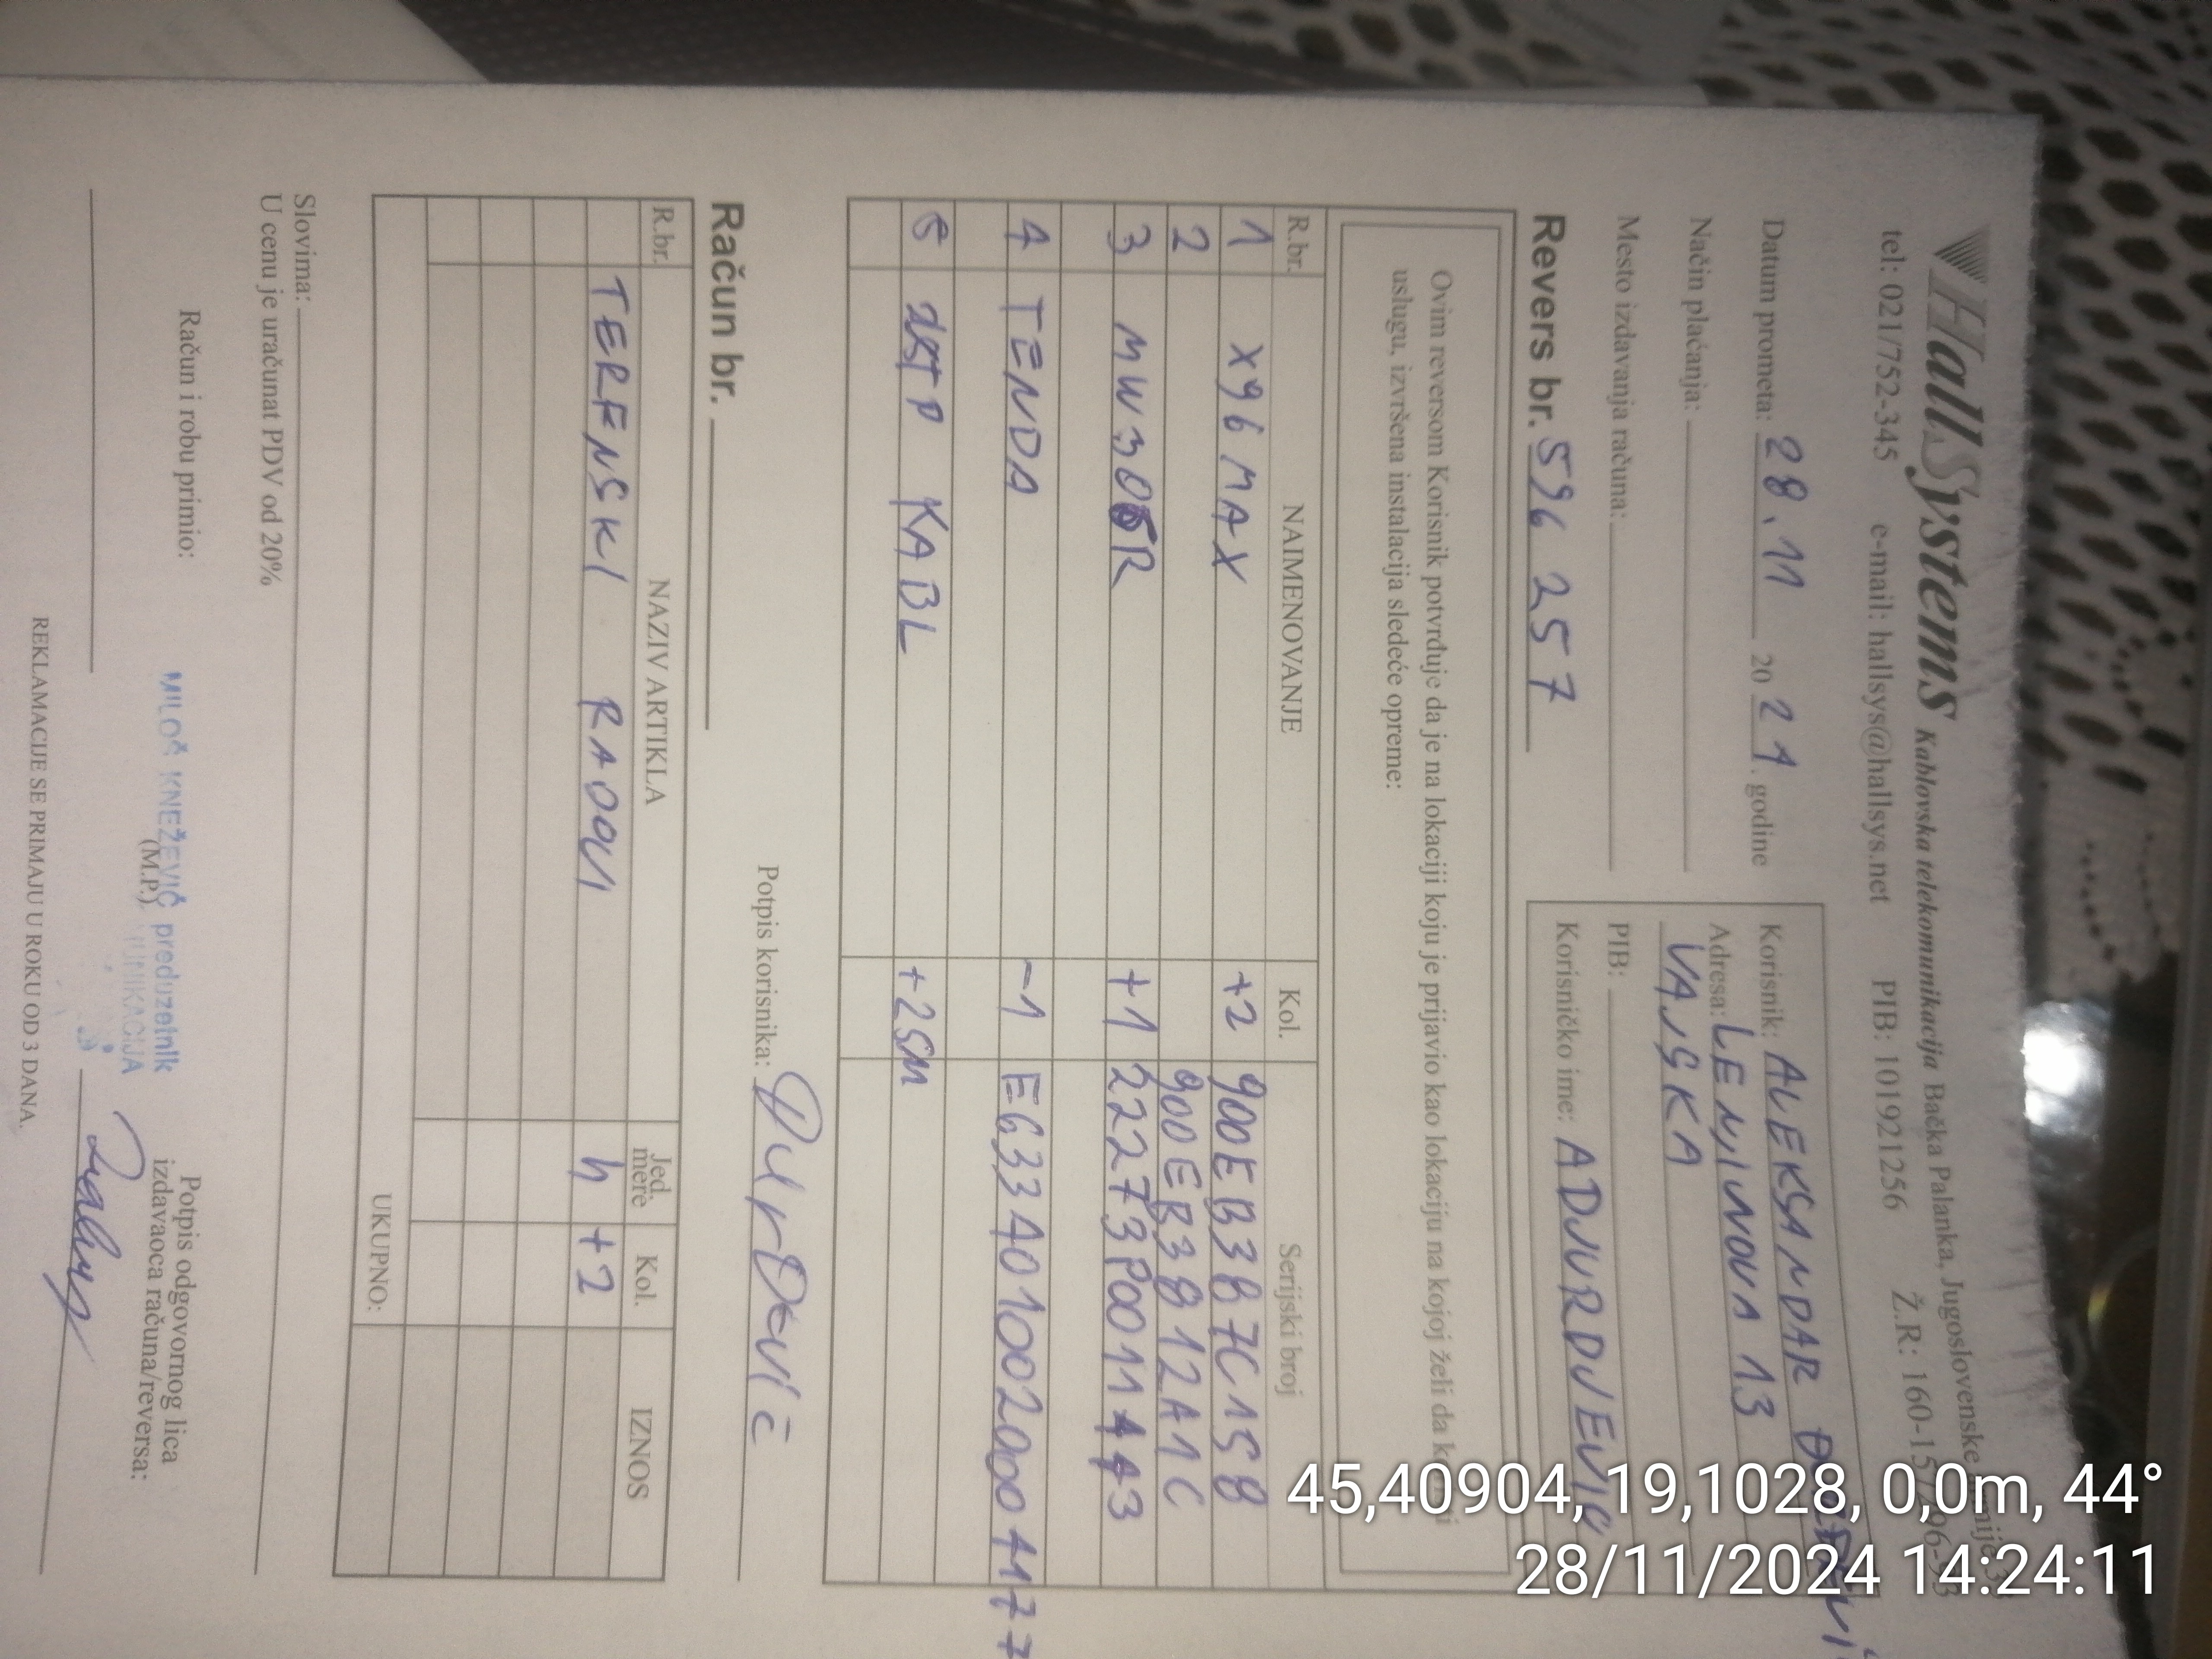 HallSystems Kablovska telekomunikacija Bačka Palanka, Jugoslovenske
tel: 021/752-345 e-mail: hallsys@hallsys.net PIB: 101921256 Ž.R: 160-
Datum prometa: 28.11 2024. godine
Način plaćanja:
Mesto izdavanja računa:
Korisnik: ALEKSANDAR
Adresa: LENJINOVA 13
VAJSKA
PIB:
Korisničko ime: ADJURDJEVIC
Revers br. 596 257
Ovim reversom Korisnik potvrđuje da je na lokaciji koju je prijavio kao lokaciju na kojoj želi da
uslugu, izvršena instalacija sledeće opreme:
R.br. NAIMENOVANJE Kol. Serijski broj
1 X96 MAX +2 900EB3B7C158
2 900EB3812A1C
3 MW305R +1 22273P0011443
4 TENDA -1 E6334010020004177
5 KABL +25m
Potpis korisnika: ĐurĐević
Račun br.
R.br. NAZIV ARTIKLA Jed. mere Kol. IZNOS
TERENSKI RADOVI h +2
UKUPNO:
Slovima:
U cenu je uračunat PDV od 20%
Račun i robu primio:
MILOŠ KNEŽEVIĆ preduzetnik
(M.P.)
Potpis odgovornog lica
izdavaoca računa/reversa:
REKLAMACIJE SE PRIMAJU U ROKU OD 3 DANA.
45,40904, 19,1028, 0,0m, 44°
28/11/2024 14:24:11